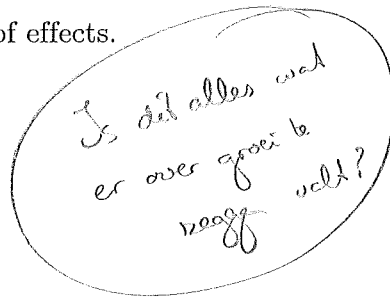 of effects.
Is dit alles wat
er over groei te
zeggen valt?